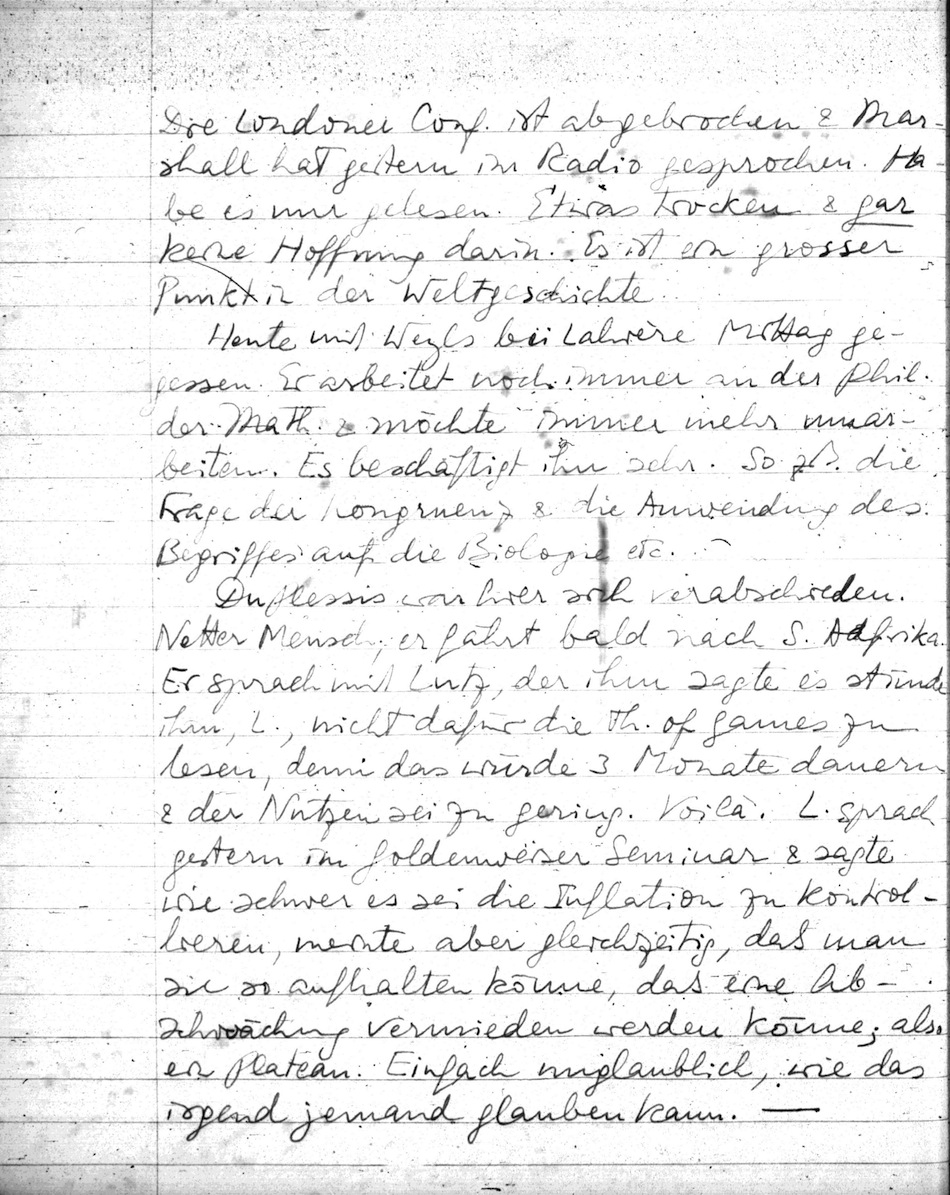 Die Londoner Conf. ist abgebrochen & Mar-
shall hat gestern im Radio gesprochen. Ha-
be es nur gelesen. Etwas trocken & gar
keine Hoffnung darin. Es ist ein grosser
Punkt in der Weltgeschichte.
Heute mit Weyls bei Lahière Mittag ge-
gessen. Er arbeitet noch immer an der Phil.
der Math. & möchte immer mehr umar-
beiten. Es beschäftigt ihn sehr. So z.B. die
Frage der Kongruenz & die Anwendung des
Begriffes auf die Biologie etc.
Duplessis war hier sich verabschieden.
Netter Mensch, er fährt bald nach S. Afrika.
Er sprach mit Lutz, der ihm sagte es stünde
ihm, L., nicht dafür die Th. of games zu
lesen, denn das würde 3 Monate dauern
& der Nutzen sei zu gering. Voilà. L. sprach
gestern im Goldenweiser Seminar & sagte
wie schwer es sei die Inflation zu kontrol-
lieren, meinte aber gleichzeitig, dass man
sie so aufhalten könne, dass eine Ab-
schwächung vermieden werden könne; also
ein Plateau. Einfach unglaublich, wie das
irgend jemand glauben kann. —